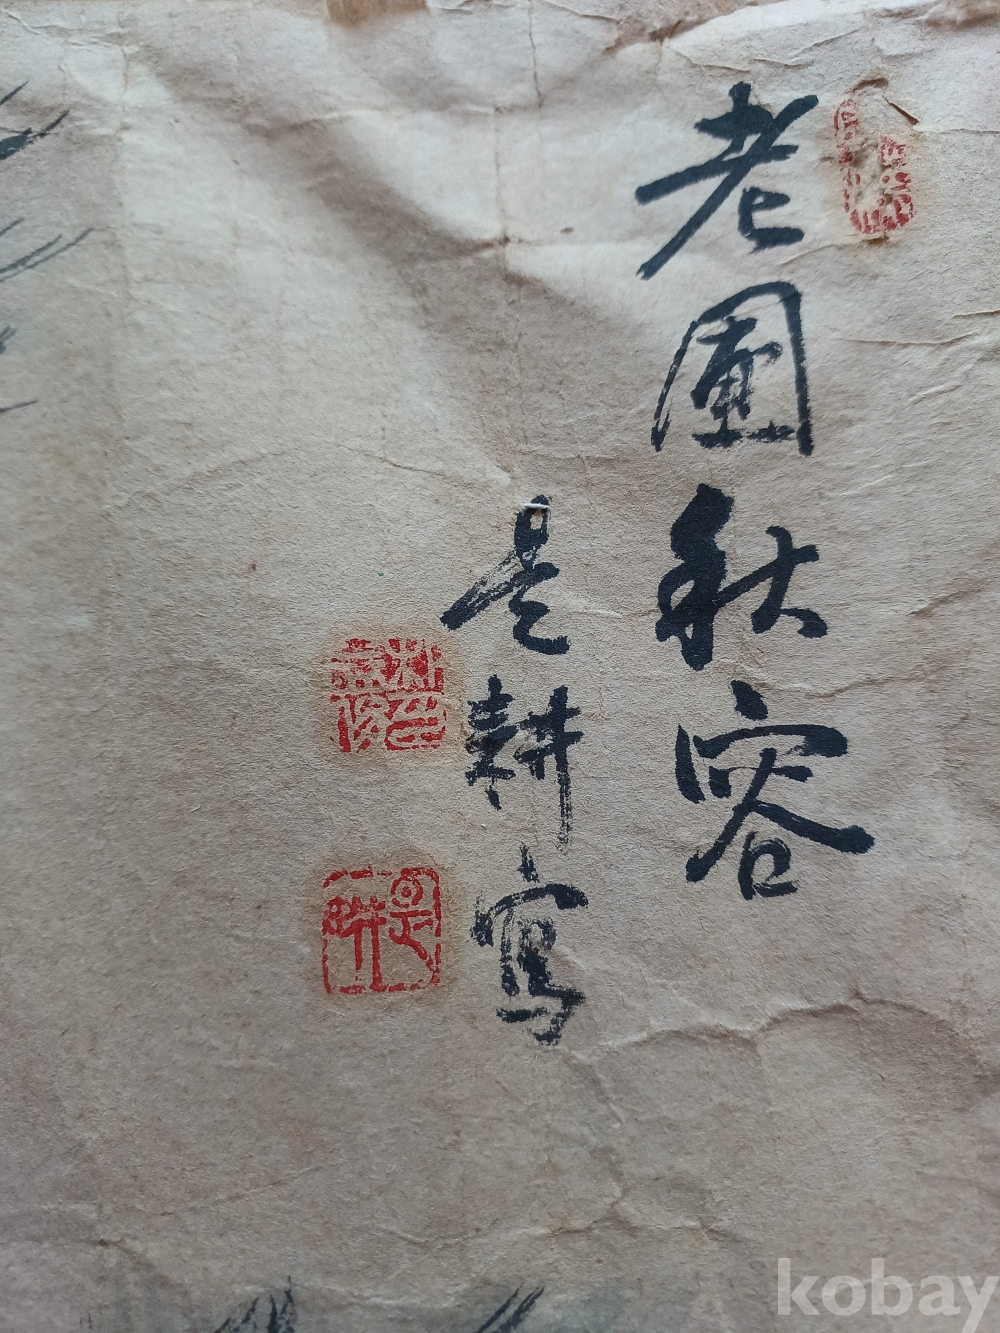 老圃秋容
是耕寫
是耕
kobay